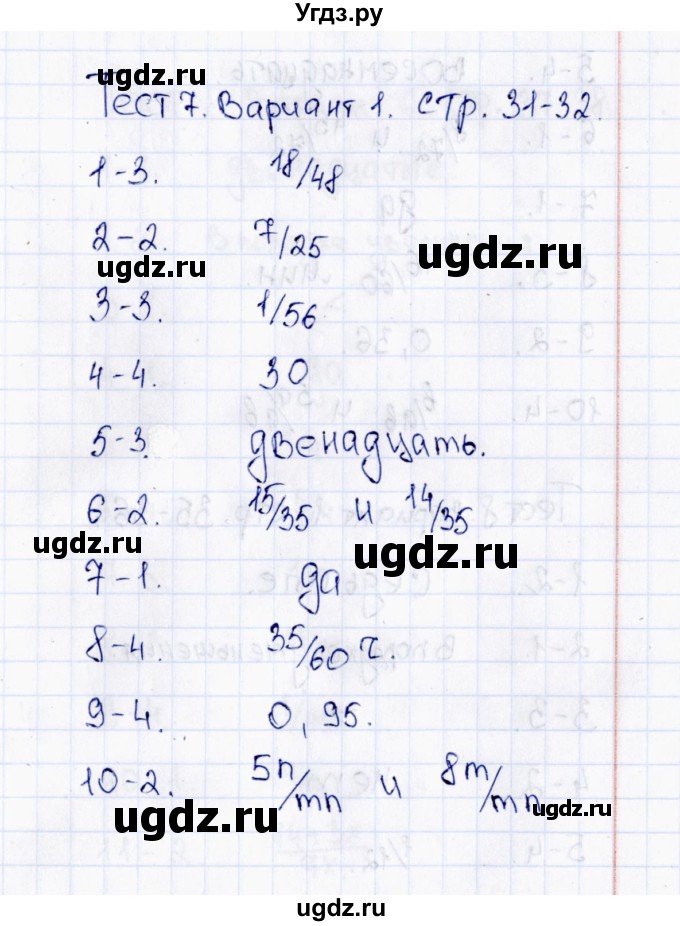 Угдз.ру
ugdz.ru
Тест 7. Вариант 1. стр. 31-32.
1-3. 18/48
2-2. 7/25
ugdz.ru ugdz.ru
3-3. 1/56
4-4. 30
5-3. двенадцать.
6-2. 15/35 и 14/35
ugdz.ru ugdz.ru
7-1. да
8-4. 35/60 ч.
9-4. 0,95.
10-2. 5n/mn и 8m/mn
ugdz.ru ugdz.ru
ugdz.ru